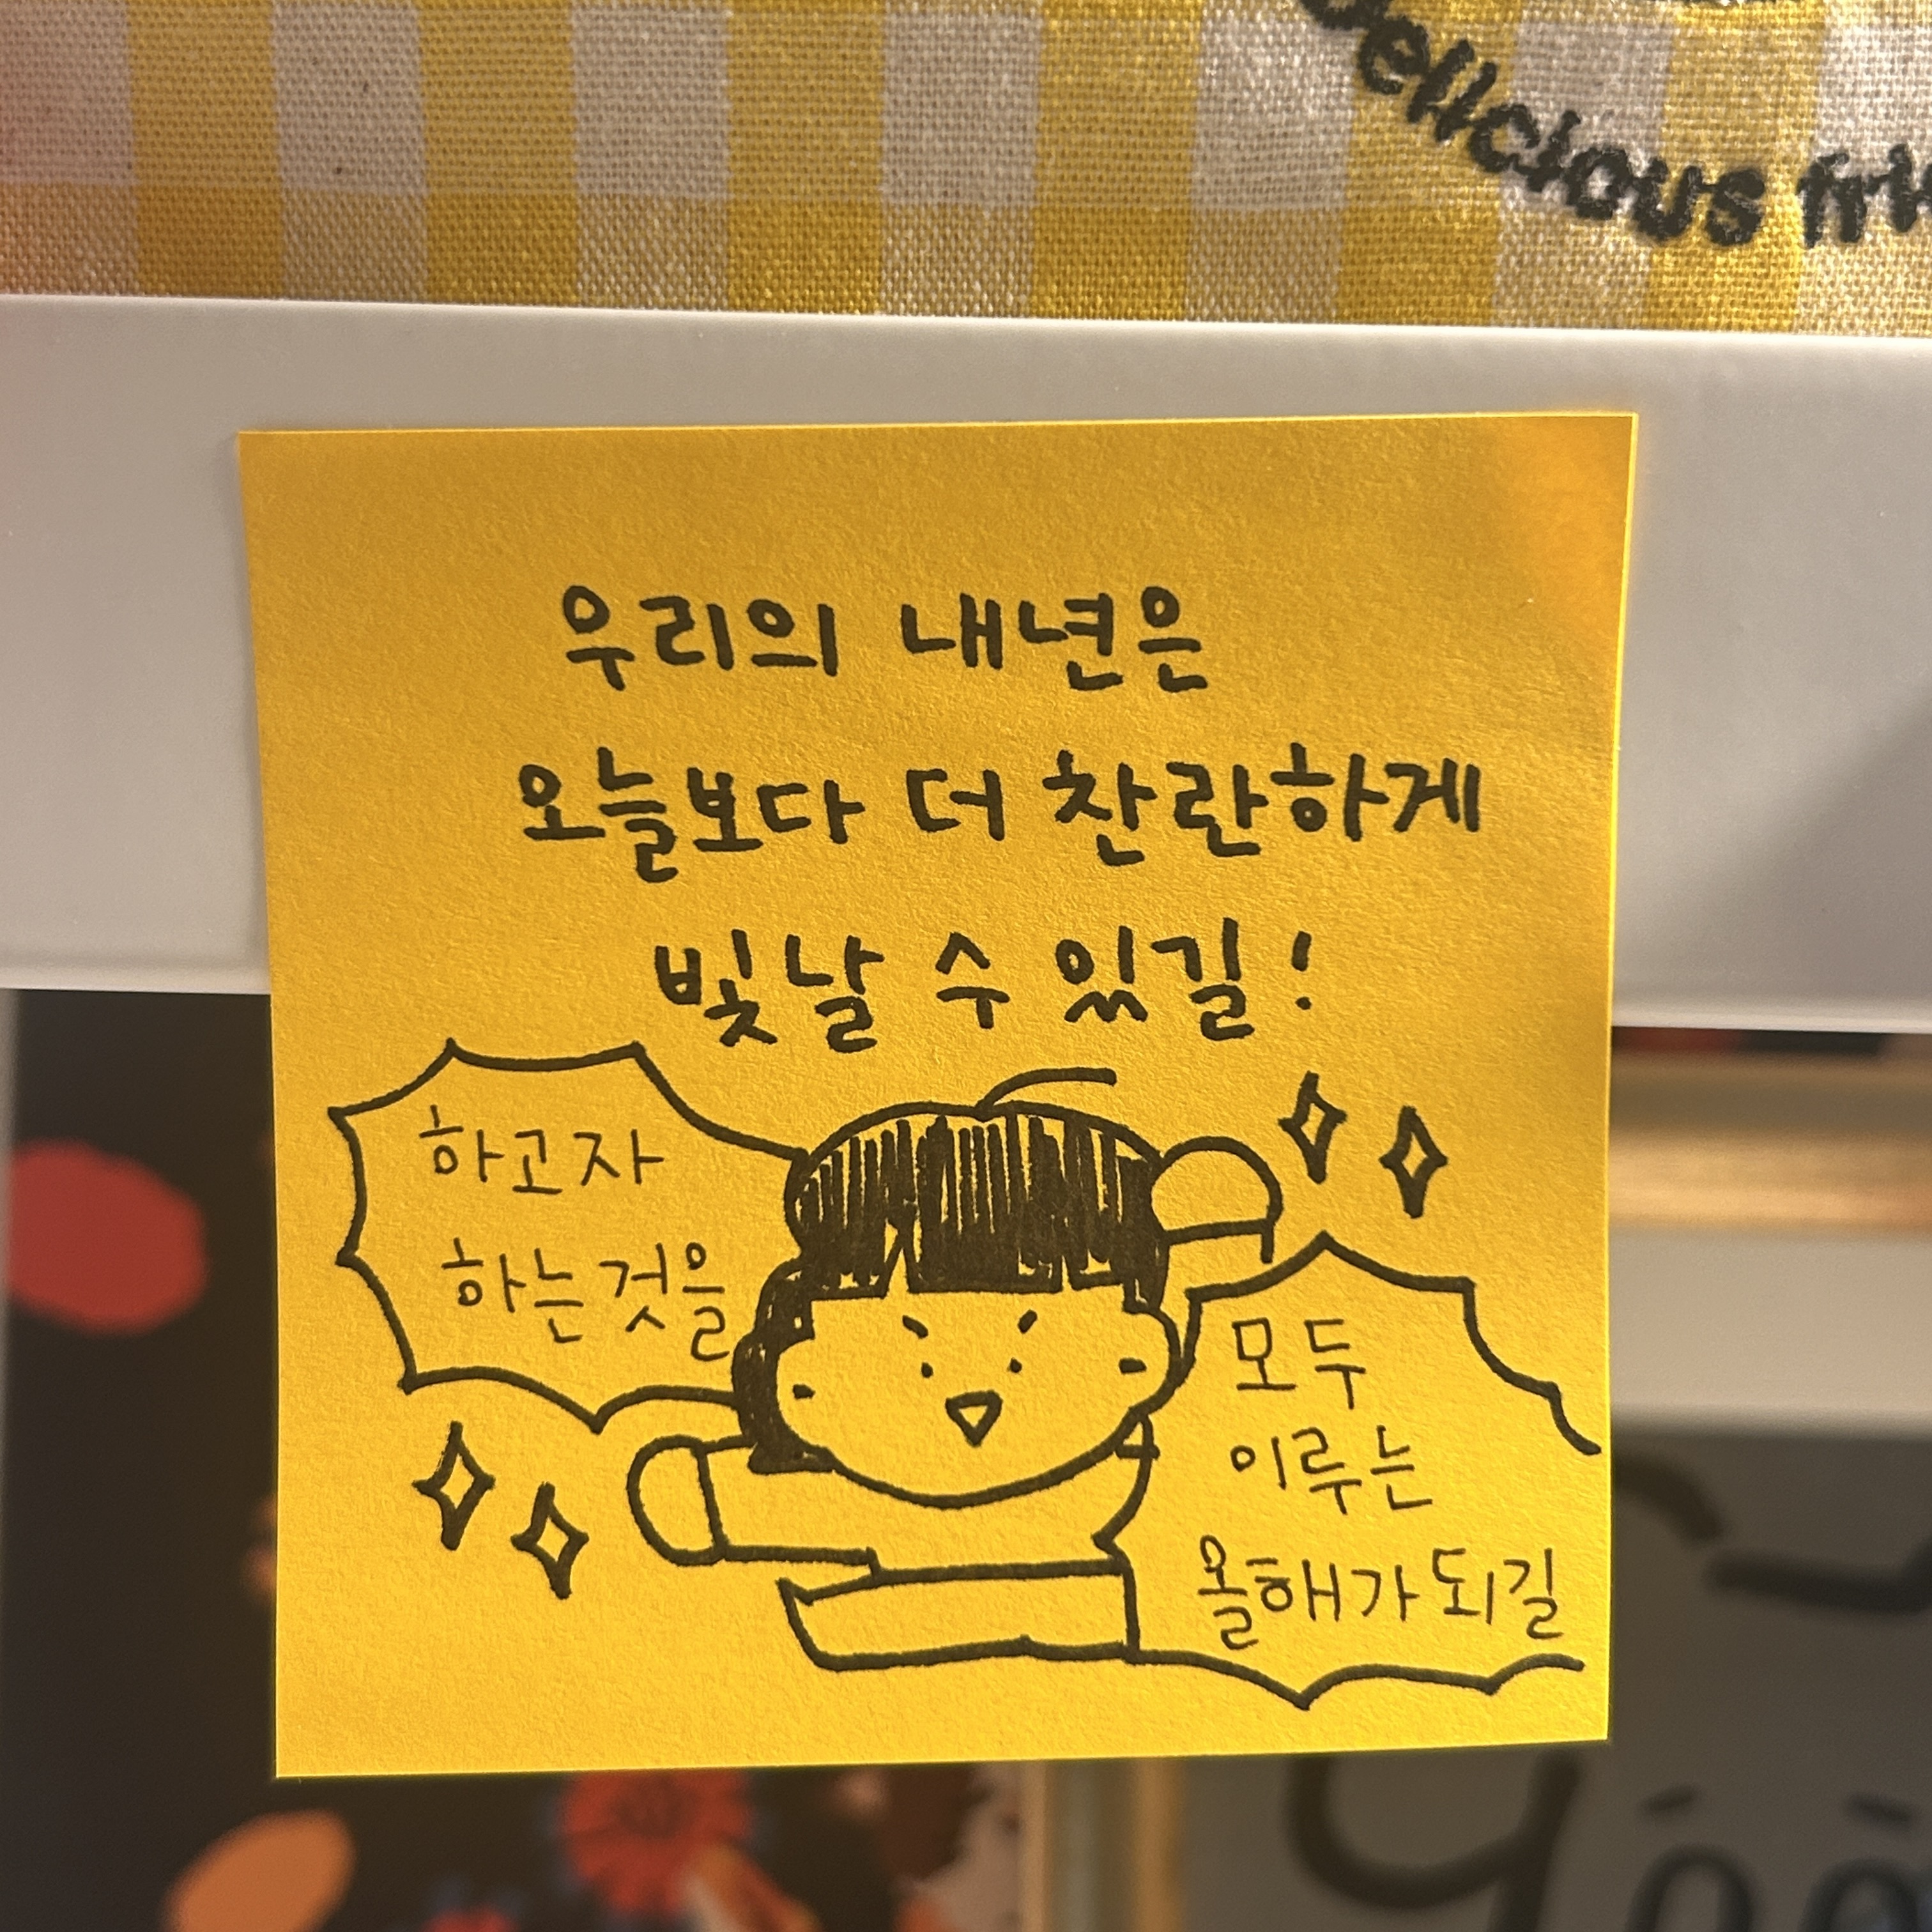 Delicious
우리의 내년은
오늘보다 더 찬란하게
빛날 수 있길!
하고자
하는것을
모두
이루는
올해가되길